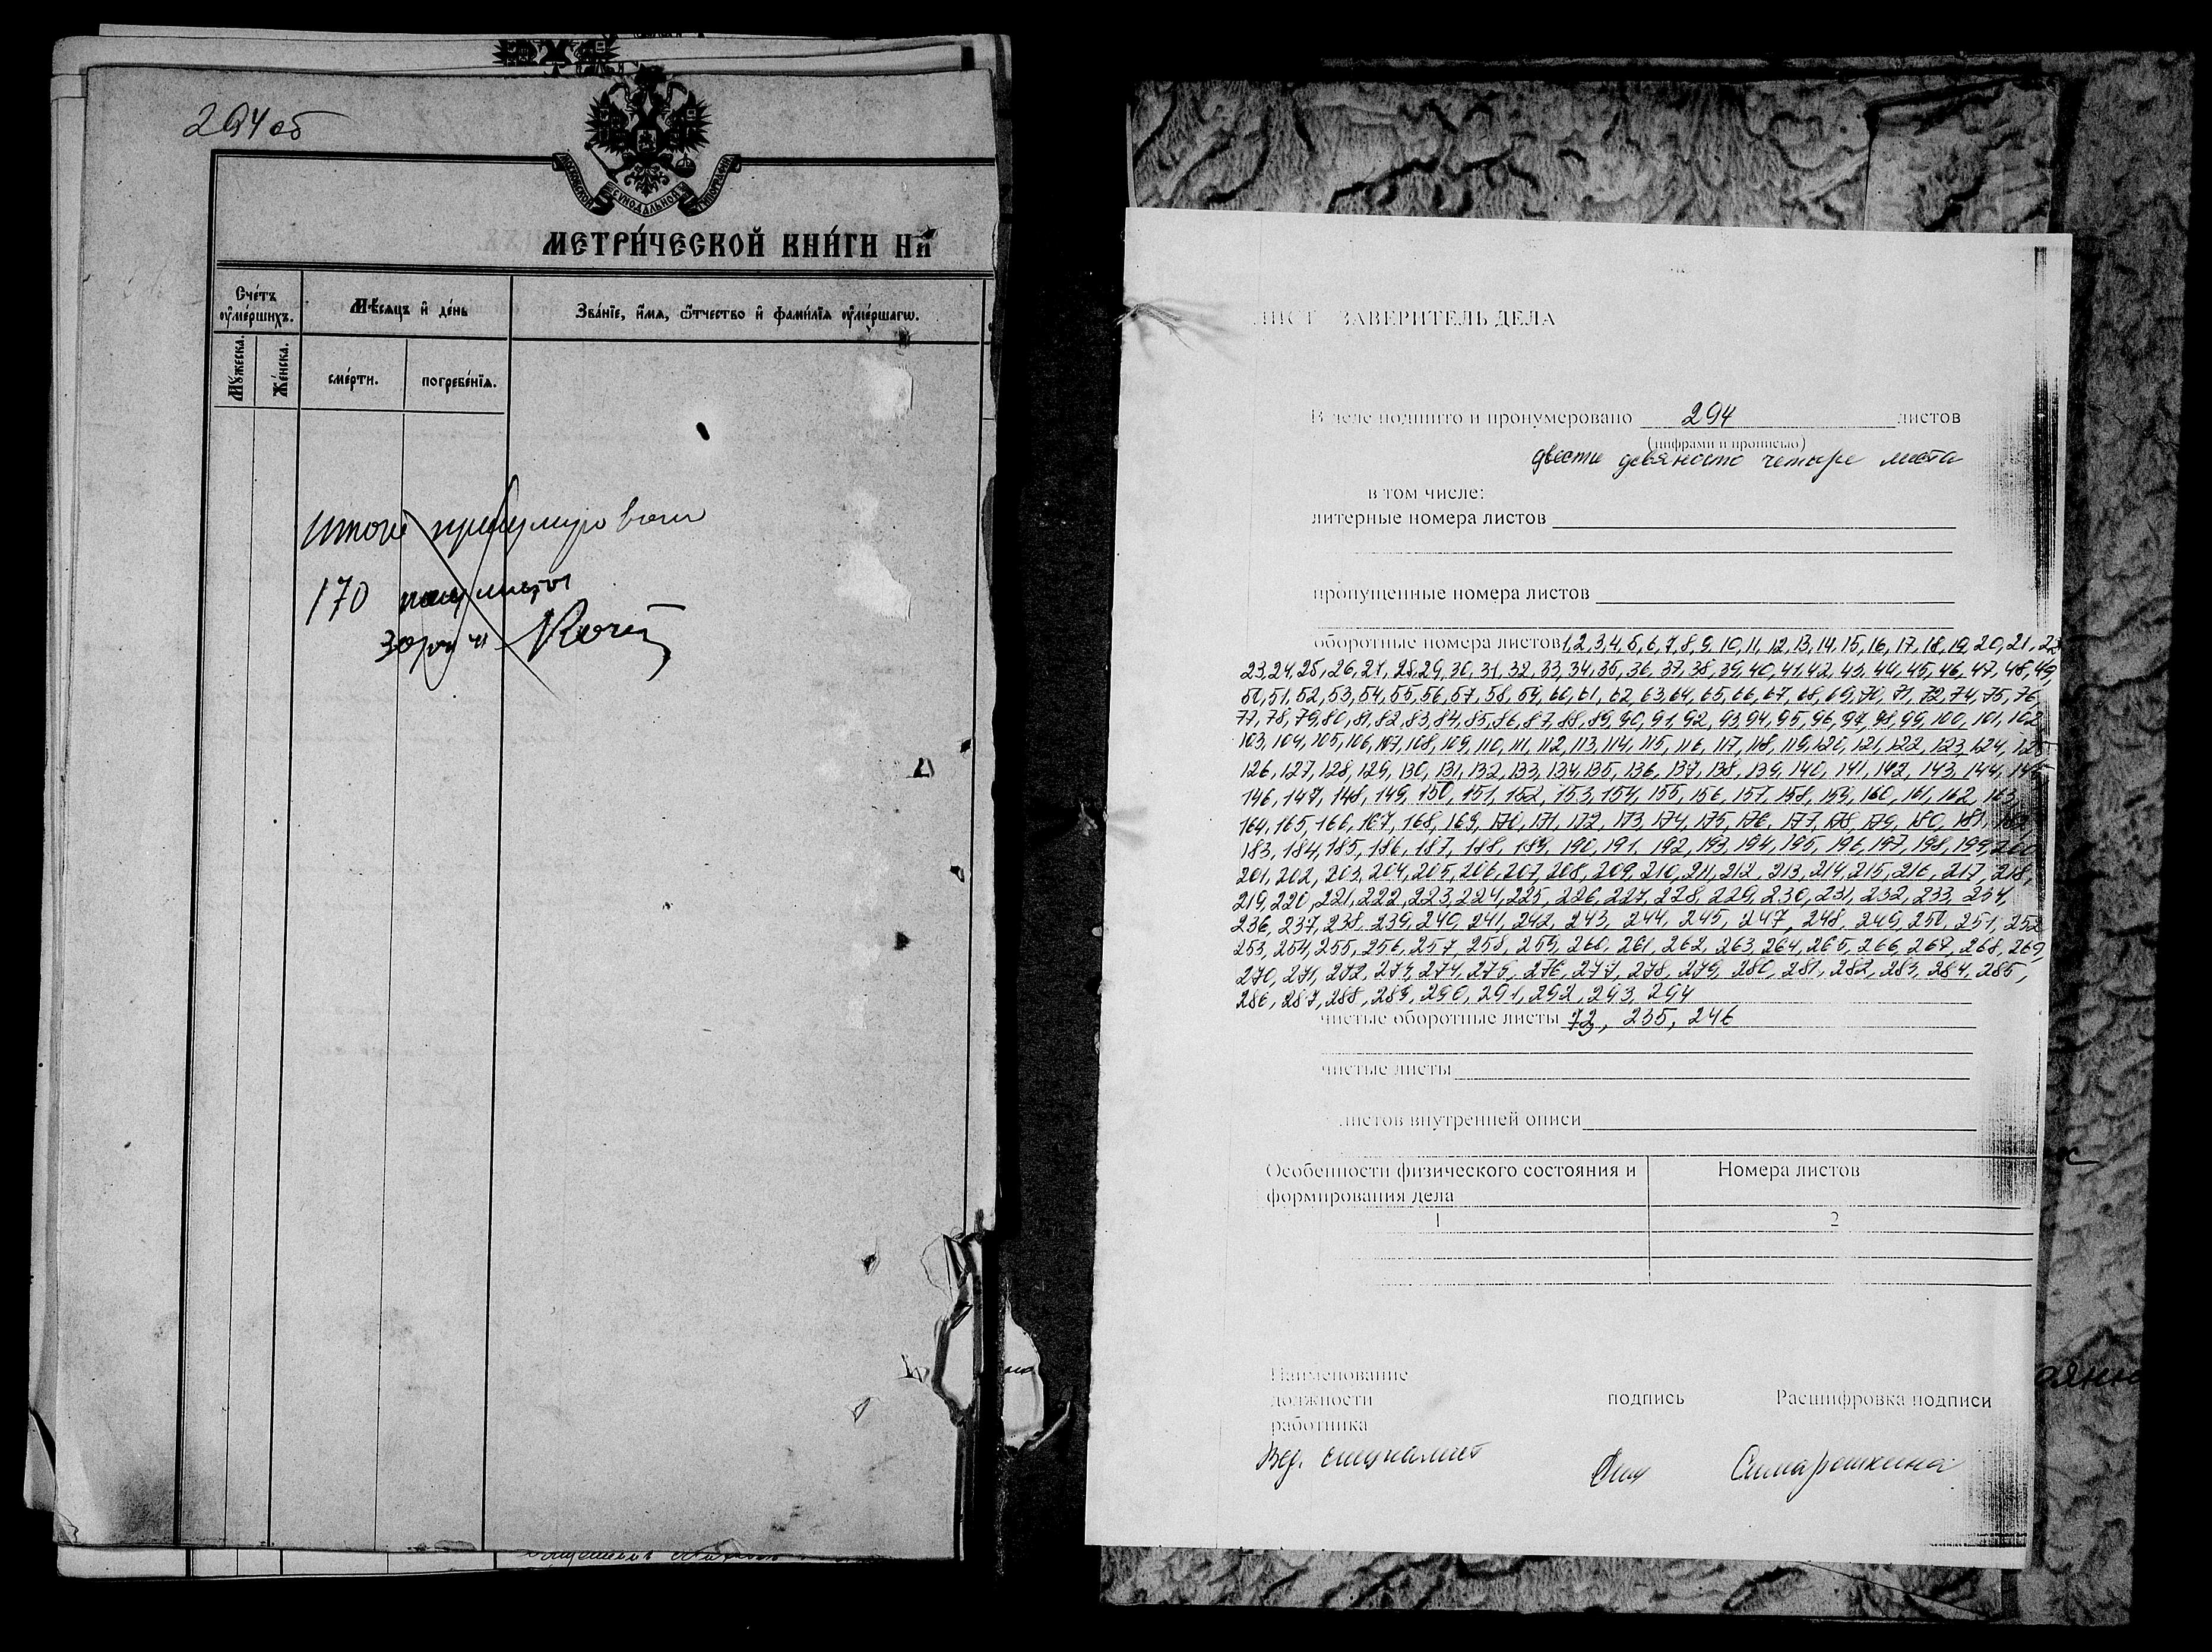 294 об
МОСКОВСКОЙ СѴНОДАЛЬНОЙ ТИПОГРАФІИ
МЕТРИ́ЧЕСКОЙ КНИ́ГИ НА̀
Сче́тъ ᲂу҆ме́ршихъ.
Мѣ́сяцъ и҆ де́нь
Зва́нїе, и҆́мя, ѻ҆́тчество и҆ фами́лїя ᲂу҆ме́ршагѡ.
Мꙋ́жеска.
Же́нска.
сме́рти.
погребе́нїя.
Итого пронумеровано
170
ЛИСТ ЗАВЕРИТЕЛЬ ДЕЛА
В деле подшито и пронумеровано 294 листов
(цифрами и прописью)
двести девяносто четыре листа
в том числе:
литерные номера листов
пропущенные номера листов
оборотные номера листов 1, 2, 3, 4, 5, 6, 7, 8, 9, 10, 11, 12, 13, 14, 15, 16, 17, 18, 19, 20, 21, 22
23, 24, 25, 26, 27, 28, 29, 30, 31, 32, 33, 34, 35, 36, 37, 38, 39, 40, 41, 42, 43, 44, 45, 46, 47, 48, 49,
50, 51, 52, 53, 54, 55, 56, 57, 58, 59, 60, 61, 62, 63, 64, 65, 66, 67, 68, 69, 70, 71, 72, 74, 75, 76,
77, 78, 79, 80, 81, 82, 83, 84, 85, 86, 87, 88, 89, 90, 91, 92, 93, 94, 95, 96, 97, 98, 99, 100, 101, 102
103, 104, 105, 106, 107, 108, 109, 110, 111, 112, 113, 114, 115, 116, 117, 118, 119, 120, 121, 122, 123, 124, 125
126, 127, 128, 129, 130, 131, 132, 133, 134, 135, 136, 137, 138, 139, 140, 141, 142, 143, 144, 145
146, 147, 148, 149, 150, 151, 152, 153, 154, 155, 156, 157, 158, 159, 160, 161, 162, 163,
164, 165, 166, 167, 168, 169, 170, 171, 172, 173, 174, 175, 176, 177, 178, 179, 180, 181, 182
183, 184, 185, 186, 187, 188, 189, 190, 191, 192, 193, 194, 195, 196, 197, 198, 199, 200
201, 202, 203, 204, 205, 206, 207, 208, 209, 210, 211, 212, 213, 214, 215, 216, 217, 218,
219, 220, 221, 222, 223, 224, 225, 226, 227, 228, 229, 230, 231, 232, 233, 234,
236, 237, 238, 239, 240, 241, 242, 243, 244, 245, 247, 248, 249, 250, 251, 252
253, 254, 255, 256, 257, 258, 259, 260, 261, 262, 263, 264, 265, 266, 267, 268, 269,
270, 271, 272, 273, 274, 275, 276, 277, 278, 279, 280, 281, 282, 283, 284, 285,
286, 287, 288, 289, 290, 291, 292, 293, 294
чистые оборотные листы 73, 235, 246
чистые листы
листов внутренней описи
Особенности физического состояния и формирования дела
Номера листов
1 2
Наименование
должности
работника
подпись
Расшифровка подписи
Вед. специалист